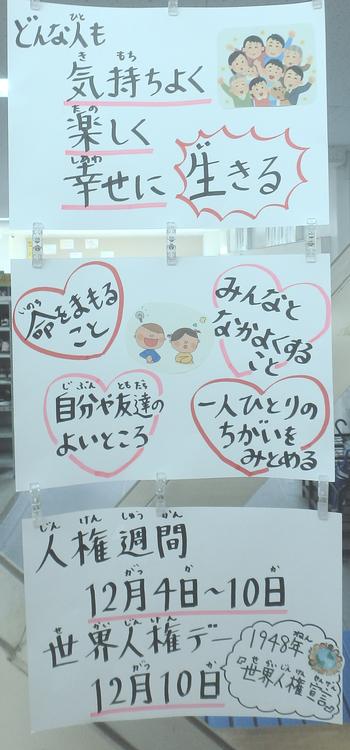 どんな人も
気持ちよく
楽しく
幸せに
生きる
命をまもる
こと
みんなと
なかよくする
こと
自分や友達の
よいところ
一人ひとりの
ちがいを
みとめる
人権週間
12月4日～10日
世界人権デー
12月10日
1948年
『世界人権宣言』